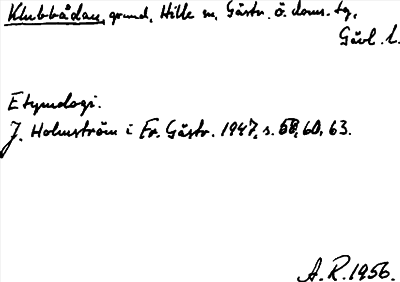 Klubbådan, grund, Hille sn, Gästr. ö. doms. tg,
Gävl. l.
Etymologi.
J. Holmström i Fr. Gästr. 1947, s. 58, 60, 63.
A. R. 1956.